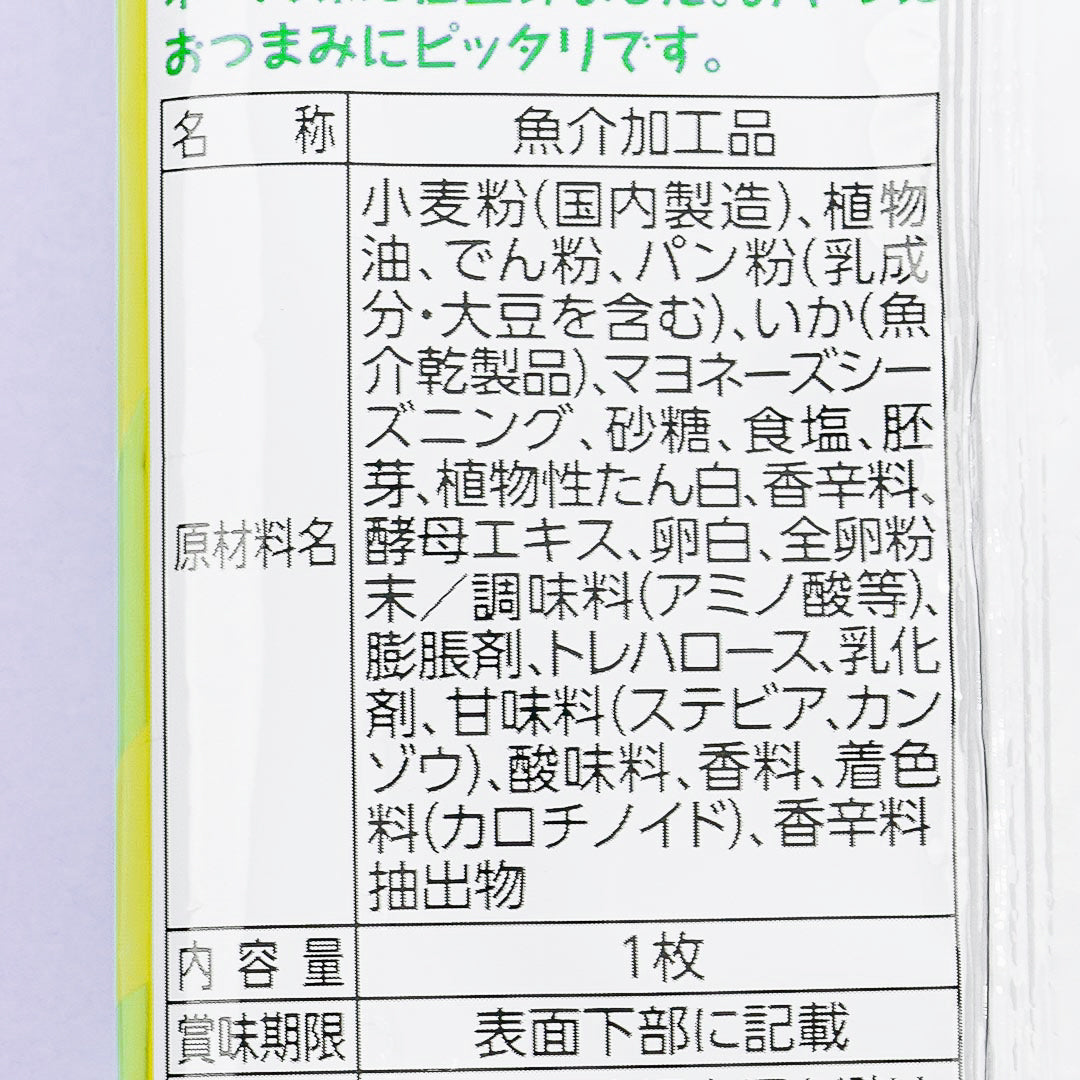 おつまみにピッタリです。
名称 魚介加工品
原材料名
小麦粉(国内製造)、植物
油、でん粉、パン粉(乳成
分・大豆を含む)、いか(魚
介乾製品)、マヨネーズシー
ズニング、砂糖、食塩、胚
芽、植物性たん白、香辛料、
酵母エキス、卵白、全卵粉
末/調味料(アミノ酸等)、
膨脹剤、トレハロース、乳化
剤、甘味料(ステビア、カン
ゾウ)、酸味料、香料、着色
料(カロチノイド)、香辛料
抽出物
内容量 1枚
賞味期限 表面下部に記載